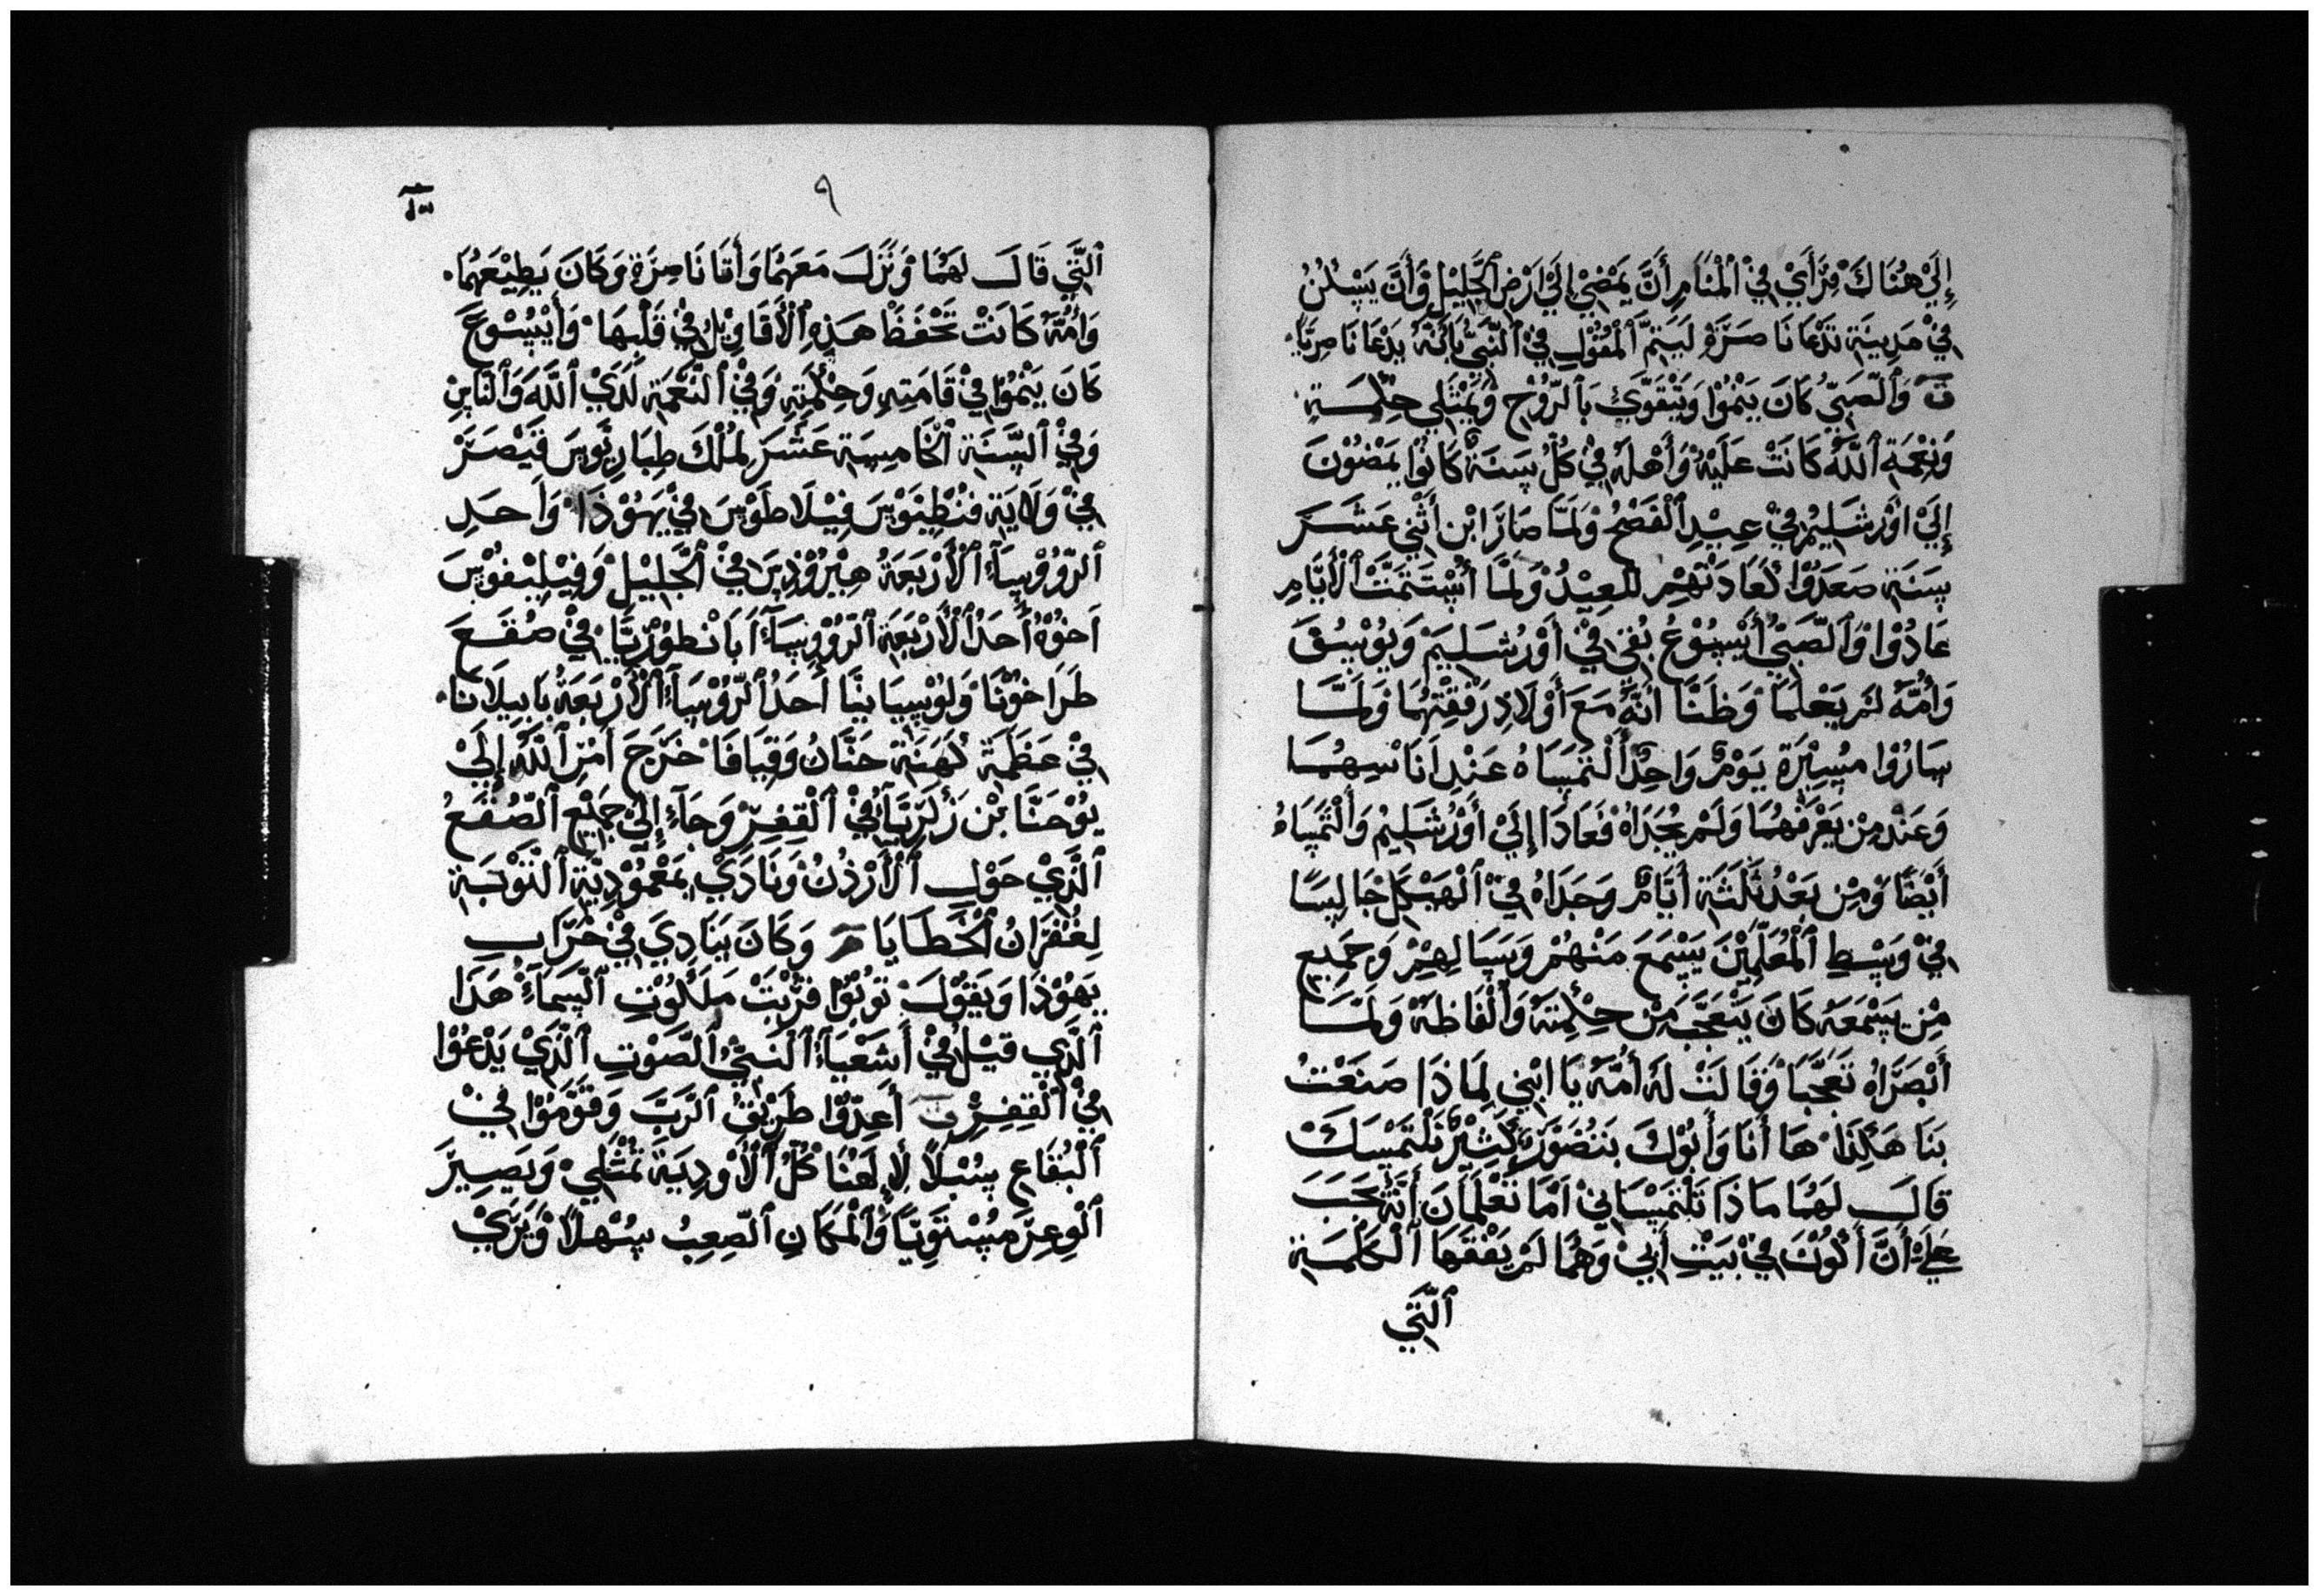 إِلَيْ هُنَاكَ فَرَأَيْ فِيْ الْمَنَامِ أَنَّ يَمْضِيْ إِلَيْ أَرْضِ الْجَلِيْلِ وَأَنَّ يَسْكُنْ
فِيْ مَدِينَةِ تَدْعَا نَاصَرَةِ لِيَتِمَّ الْمَقُوْلِ فِيْ النَّبِيِّ بِأَنَّهُ يَدْعَا نَاصِرِيًّا
ق وَالصَّبِيّ كَانَ يَنْمُوْا وَيَتَقَوَّيْ بِالرُّوْحِ وَيَمْتَلِي حِكْمَةِ
وَنِعْمَةِ اللَّهُ كَانَتْ عَلَيْهْ وَأَهْلَهُ فِيْ كُلّ سَنَةً كَانُوْا يَمْضُوْنَ
إِلَيْ أُوْرْشَلِيْمُ فِيْ عِيْدِ الْفَصْحُ وَلَمَّا صَارَ ابْن أَثْنِي عَشَرَ
سَنَةِ صَعَدُوْا لَعَادَتْهِمْ لَلعِيْدُ وَلَمَّا أَسْتَتَمَّتْ الْأَيَّامِ
عَادُوْا وَالصَّبِيْ أَيْسُوْعُ بَقِي فِيْ أُوْرْشَلِيَمْ وَيُوْسُفَ
وَأُمَّهُ لَمْ يَعْلَمَا وَظَنَّا أَنَّهُ مَعَ أَوْلَادِ رَفْقِتْهِمَا وَلَمَّا
سَارُوْا مَسِيْرَةِ يَوْمٌ وَاحِدٌ أَلْتَمَسَاهُ عَنْدِ أَنَاسِهِمَا
وَعَنْد مِنْ يَعْرَفْهُمَا وَلَمْ يَجُدَاهُ فَعَادَا إِلَيْ أُوْرْشَلِيْمُ وَالْتَمَسَاهُ
أَيْضًا وَمِنْ بَعْدُ ثَلَثَةِ أَيَّامٌ وَجَدَاهُ فِيْ الْهَيْكَلْ جَالِسًا
فِيْ وَسْطِ الْمُعَلِّمِيْنَ يَسْمَعَ مَنْهُمْ وَيَسَالهِمْ وَجَمِيع
مِن يَسْمَعَهُ كَانَ يَتَعَجَّبْ مِنْ حِكْمِتَهُ وَأَلْفَاظهُ وَلَمَّا
أَبْصَرَاهُ تَعَجَّبَا وَقَالَتْ لَهُ أُمَّهُ يَا ابْنِي لِمَاذَا صَنَعْتُ
بَنَا هَكَذَا هَا أَنَا وَأَبُوْكَ بَتَضَوَّرٍ كَثِيْرٍ نَلْتَمِسَكْ
قَالَ لَهُمَا مَاذَا تَلْتَمِسَانِيْ أَمَا تَعْلَمَانَ أَنَّهُ يَجَبَ
عَلَيَّ أَنَّ أَكُوْنَ فِيْ بَيْتِ أَبِيْ وَهُمَا لَمْ يَفْقَهَا الْكَلْمَةِ
الَّتِي
٩
الَّتِي قَالَ لَهُمَا وَنَزَلَ مَعَهُمَا وَأَتَا نَاصِرَةِ وَكَانَ يَطِيْعَهُمَا
وَأُمَّهُ كَانَتْ تَحْفَظْ هَذِهِ الْأَقَاوِيْلُ فِيْ قَلْبِهَا وَأَيْسُوْعَ
كَانَ يَنْمُوْا فِيْ قَامَتِهِ وَحِكْمَتِهِ وَفِيْ النَّعْمَةِ لَدَيْ اللَّهَ وَالنَّاسِ
وَفِيْ السَّنَةِ الْخَامِسَةِ عَشَرَ لِمُلْكَ طِبَارِيَوسَ قَيْصَرْ
فِيْ وَلَايَةِ فنُطِيَوْسَ فِيْلَاطُوْسَ فِيْ يَهُوْذَا وَأَحَدِ
الرُّوُوْسَآءُ الْأَرْبَعَةُ هِيْرُوْدِسَ فِيْ الْجَلِيْلْ وَفِيْلِيْفُوْسَ
أَخُوْهُ أَحَدُ الْأَرْبَعَةِ الرُّوُوْسَآءُ أَبَانْطُوْرِيَّا فِيْ صُقْعَ
طَرَاخُوْنَا وَلُوْسِيَانِيَّا أَحَدُ الرُّوُوْسَآءُ الْأَرْبَعَةُ بَابِيلَانَا
فِيْ عَظَمَةِ كَهَنَةِ حَنَّانُ وَقِيَافَا خَرَجَ أَمْرِ اللَّهُ إِلَيْ
يُوْحَنَّا بْن زَكَرِيَّآ فِيْ الْقِفِرْ وَجَآءَ إِلَيْ جَمِيْعِ الصُّقْعُ
الَّذِي حَوْلِ الْأُرْدُنْ وَنَادَيْ بِمَعْمُوْدِيَّةِ التَّوْبَةِ
لِغُفْرَانُ الْخَطَايَا مر وَكَانَ يَنَادِيَ فِيْ خَرَابِ
يَهُوْذَا وَيَقُوْلَ تُوْبُوْا قَرُبَتْ مَلَكُوْتِ السَّمَآءِ هَذَا
الَّذِي قِيْلَ فِيْ أَشَعْيَاءُ النَّبِيُّ الصَّوْتِ الَّذِيْ يَدْعُوْا
فِيْ الْقِفِرْ ق أَعِدُّوْا طَرِيْقُ الرَّبَّ وَقَوِّمُوْا فِيْ
الْبُقَاعِ سُبُلًا لْإِلَهُنَا كُلُّ الْأَوْدِيَةَ تَمْتَلِيْ وَيَصِيْرَ
الْوِعِرَ مُسْتَوِيًّا وَالْمَكَانِ الصِّعِبُ سُهْلًا وَيَرَيْ